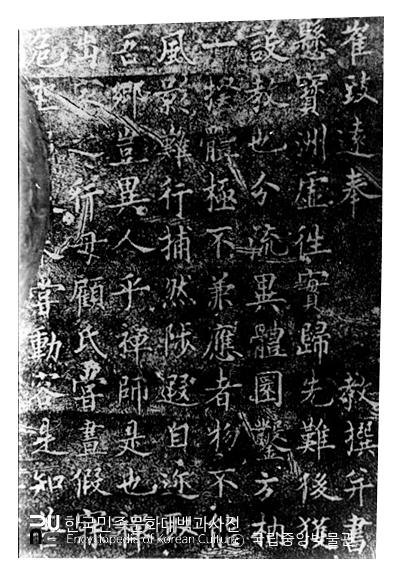 崔致遠奉 教撰幷書
懸寶洲虛往實歸先難後獲
設教也分流異體圜鑿方枘
一揆體極不兼應者物不能
風影難行捕然陟遐自迩取
吾鄉豈異人乎禪師是也禪
之行母顧氏嘗晝假寐
嘗動容是知
한국민족문화대백과사전
Encyclopedia of Korean Culture
국립중앙박물관